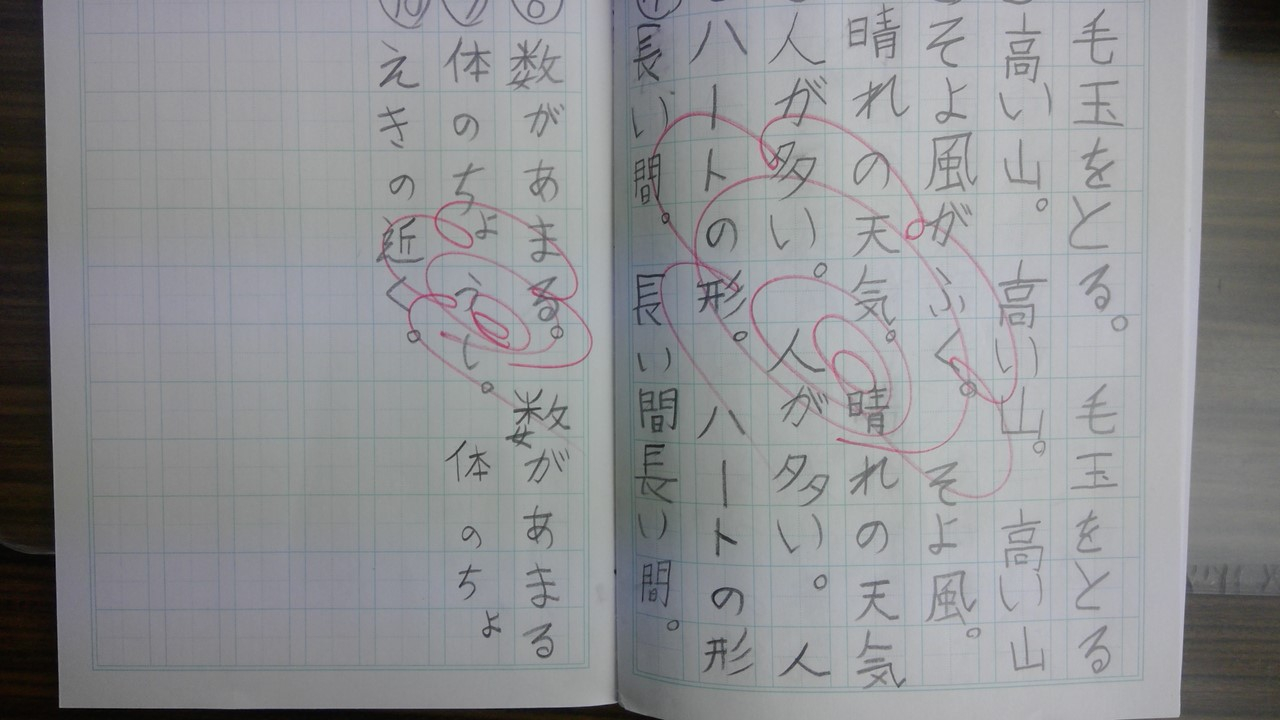 毛玉をとる。毛玉をとる
高い山。高い山。高い山
そよ風がふく。そよ風。
晴れの天気。晴れの天気
人が多い。人が多い。人
ハートの形。ハートの形
長い間。長い間長い間。
⑧数があまる。数があまる
⑨体のちょうし。体のちょ
⑩えきの近く。